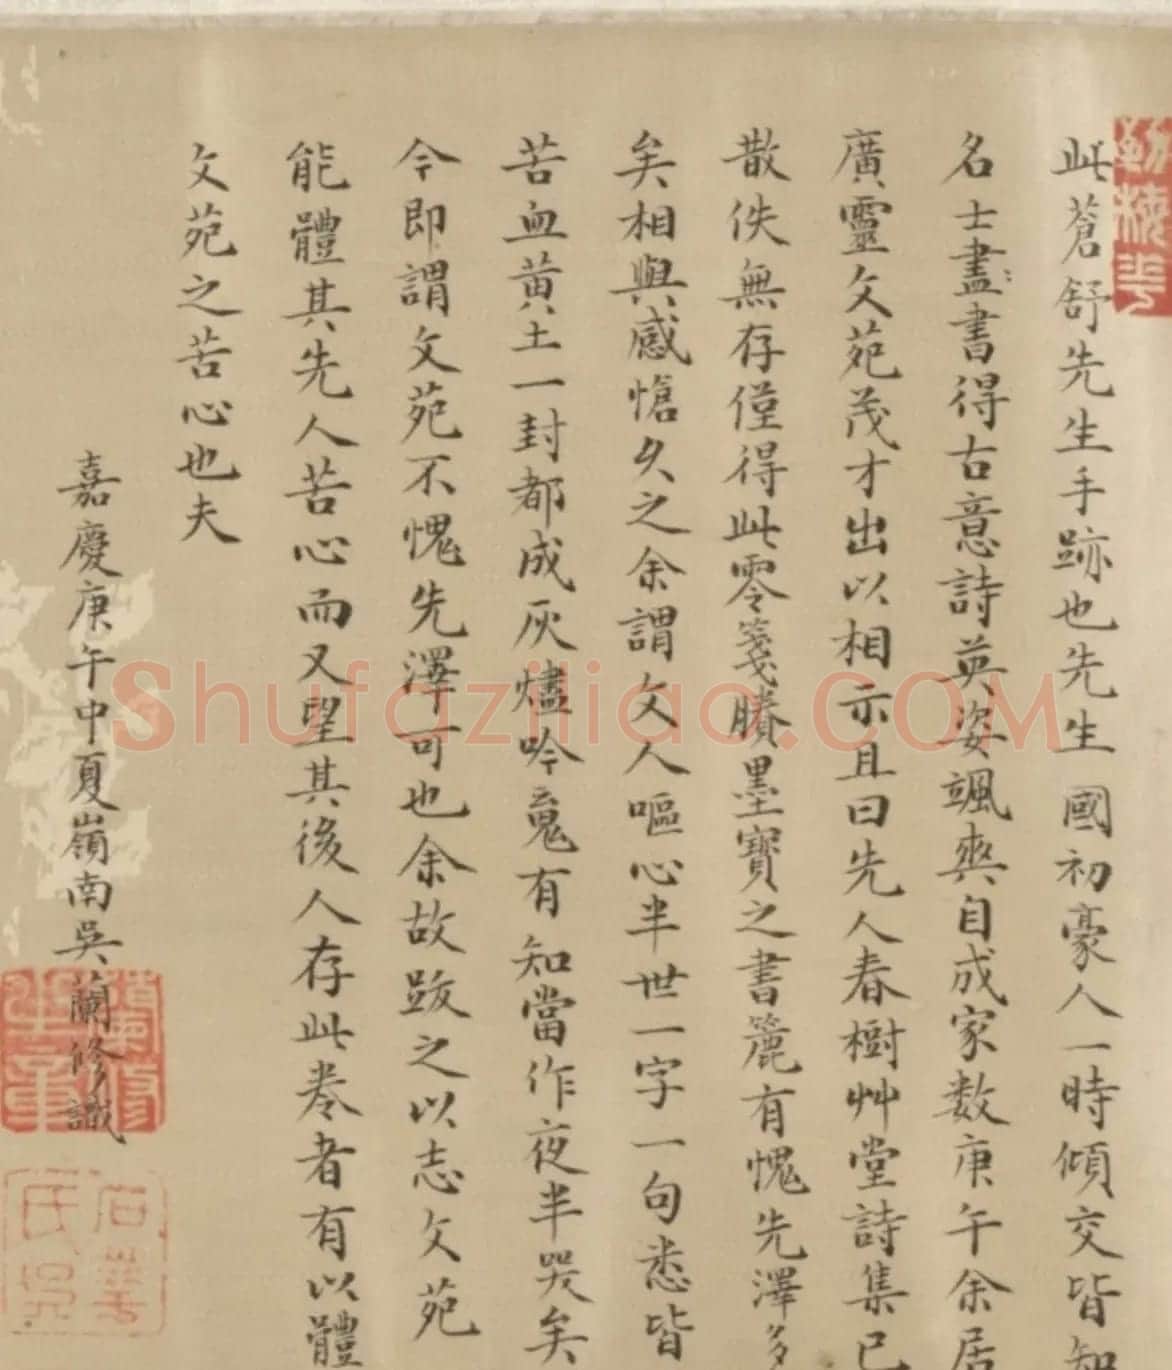 此蒼舒先生手跡也先生國初豪人一時傾交皆知
名士畫書得古意詩英姿颯爽自成家數庚午余居
廣靈文苑茂才出以相示且曰先人春樹艸堂詩集已
散佚無存僅得此零箋賸墨寶之書簏有愧先澤多
矣相與感愴久之余謂文人嘔心半世一字一句悉皆
苦血黃土一封都成灰燼吟魂有知當作夜半哭矣
今即謂文苑不愧先澤可也余故跋之以志文苑
能體其先人苦心而又望其後人存此卷者有以體
文苑之苦心也夫
嘉慶庚午中夏嶺南吳蘭修識
Shufaziliao.COM